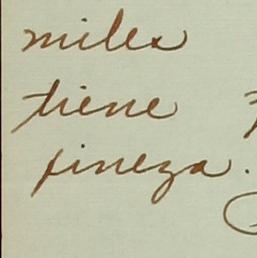 miles
tiene
fineza.